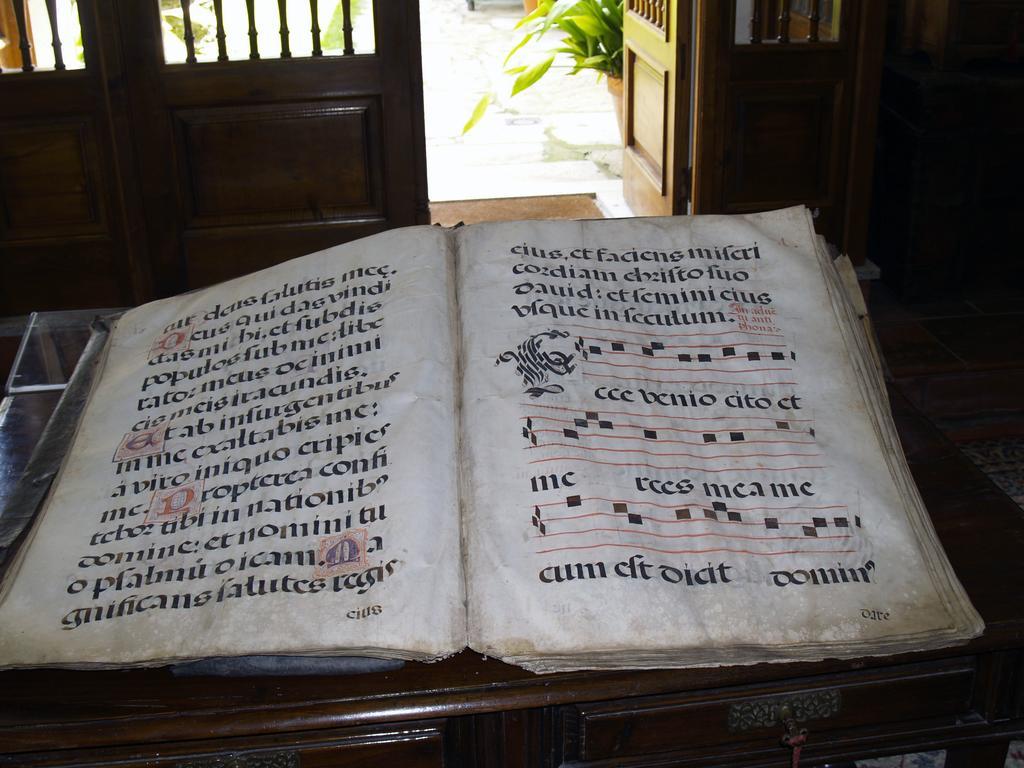 tur deus salutis mee.
Deus qui das vindi
ctas mihi, et subdis
populos sub me: libe
rator meus de inimi
cis meis iracundis.
Et ab insurgentibus
in me exaltabis me:
a viro iniquo eripies
me. Propterea confi
tebor tibi in nationibꝰ
domine: et nomini tu
o psalmū dicam. Ma
gnificans salutes regis
eius
eius, et faciens miseri
cordiam christo suo
David: et semini eius
vsque in seculum.
In adue
tu anti
phona.
Ecce venio cito et
me rces mea me
cum est dicit domin⁹
dare